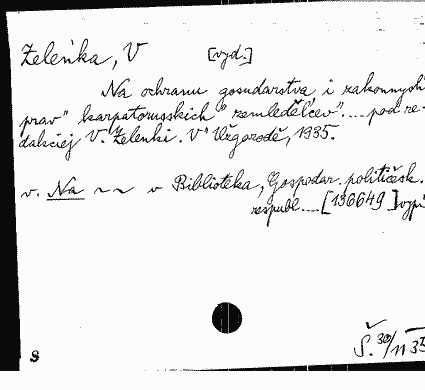 Zeleńka, V [vyd.]
Na ochranu gosudarstva i zakonnych
prav" karpatorusskich" zemleděl'cev".... pod re-
dakciej V. Zelenki. V" Užgorodě, 1935.
v. Na ~ ~ v Biblioteka, Gospodar. političesk.
respubl.... [136649] vypů
Š. 30/11 35
S